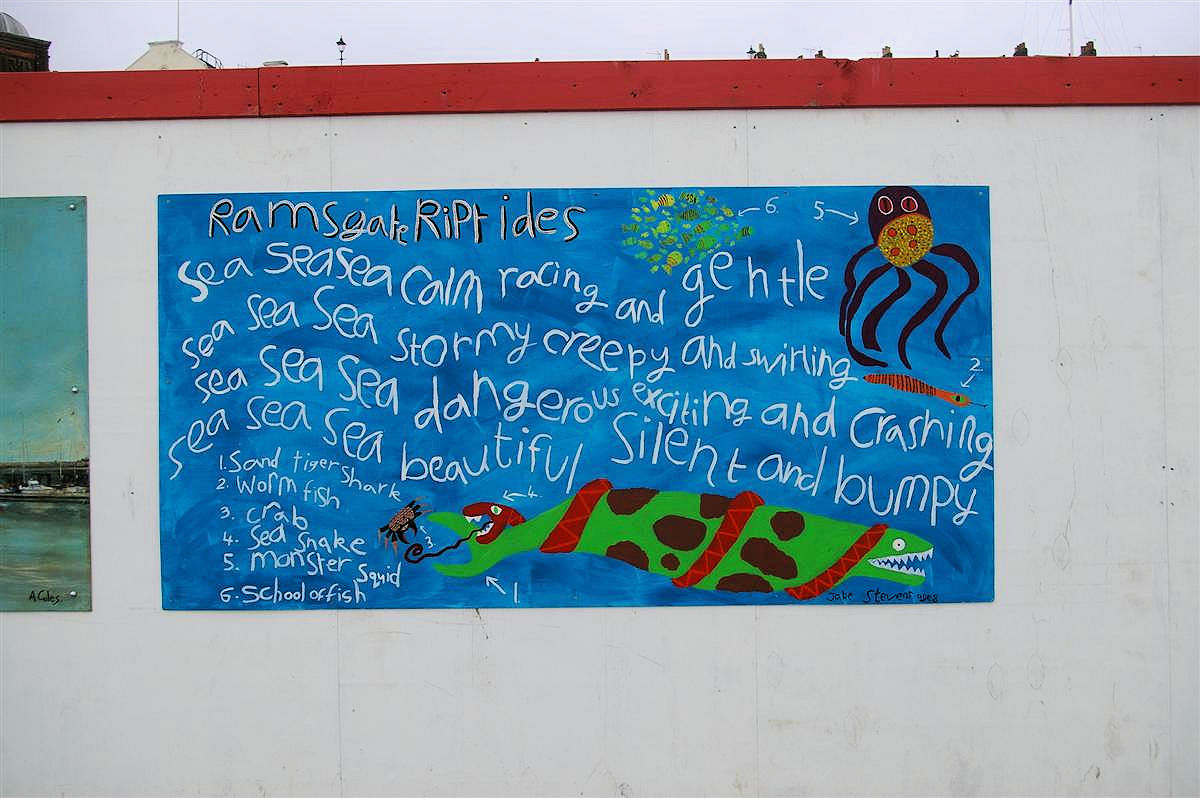 Ramsgate RiPtides
sea seasea calm racing and gentle
sea sea sea stormy creepy and swirling
sea sea sea dangerous exciting and crashing
sea sea sea beautiful silent and bumpy
1. Sand tiger shark
2. Wormfish
3. crab
4. sea snake
5. monster squid
6. School of fish
6.
5
2
4.
3.
1.
Jake Stevens aged 8
A.Coles.